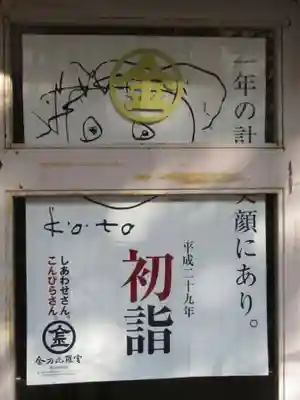 一年の計
笑顔にあり。
金
平成二十九年
初詣
しあわせさん。
こんぴらさん
金
金刀比羅宮